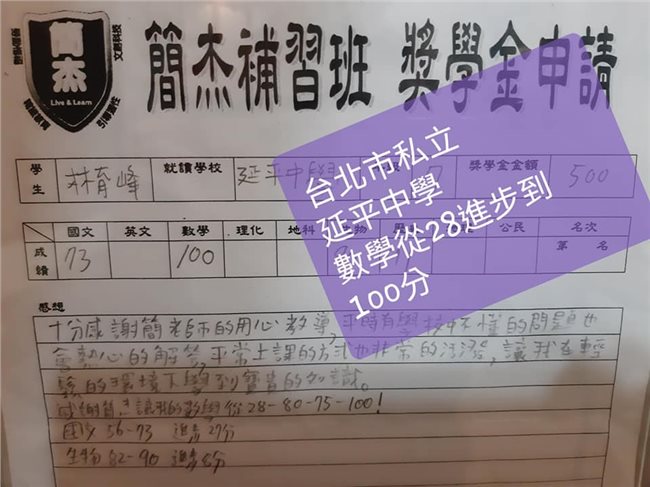 簡杰
Live & Learn
引導個性
簡杰補習班 獎學金申請
學生 林育峰 就讀學校 延平中學 獎學金金額 500
台北市私立
延平中學
數學從28進步到
100分
國文 英文 數學 理化 地科 公民 名次
成績 73 100 第 名
感想
十分感謝簡老師的用心教導,平時有學校中不懂的問題也
會熱心的解答,平常上課的方式也非常的活潑,讓我在輕
鬆的環境下學到寶貴的知識。
感謝簡杰讓我的數學從28-80-75-100!
國文 56-73 進步27分
生物 82-90 進步8分